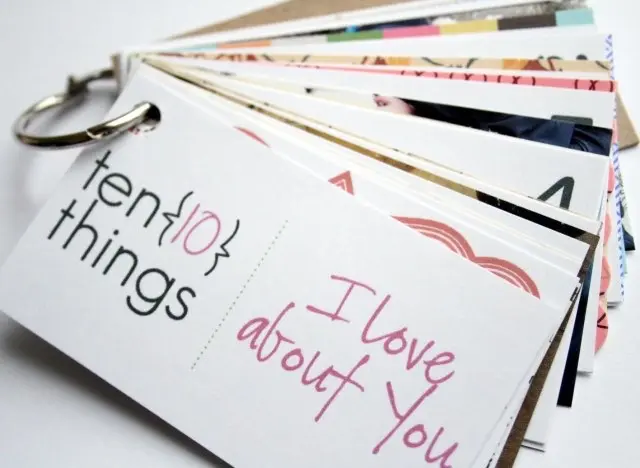 ten{10}
things
I love
about You
1